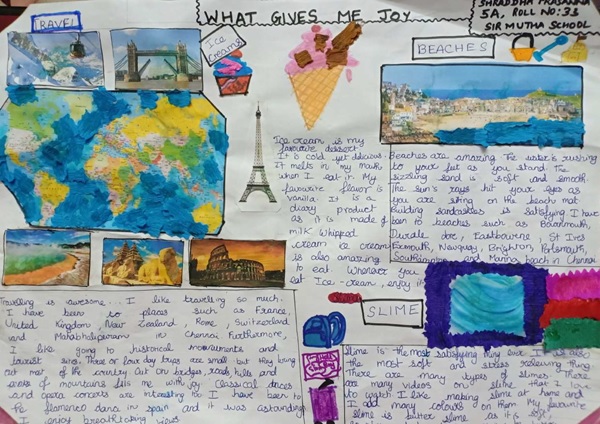 WHAT GIVES ME JOY
SHRADDHA PRASANNA
5A, ROLL NO: 33
SIR MUTHA SCHOOL
TRAVEL
Ice
creams
BEACHES
Ice cream is my
favourite dessert.
It is cold yet delicious.
It melts in my mouth
when I eat it. My
favourite flavor is
vanilla. It is a
diary product
as it is made of
milk. Whipped
cream ice cream
is also amazing
to eat. Whenever you
eat Ice-cream, enjoy it
Beaches are amazing. The water is rushing
to your feet as you stand. The
sizzling sand is soft and smooth.
The sun's rays hit your eyes as
you are sitting on the beach mat.
Building sandcastles is satisfying. I have
been to beaches such as Bournmouth,
Durdle dor, Eastbourne, St Ives
Exmouth, Newquay, Brighton, Portsmouth,
Southampton and Marina beach in Chennai
Travelling is awesome... I like travelling so much.
I have been to places such as France,
United Kingdom, New Zealand, Rome, Switzerland
and Mahabhalipuram in Chennai. Furthermore,
I like going to historical monuments and
tourist sites. Three or four day trips are small but they bring
out most of the country. Cut on bridges, roads, hills and
peaks of mountains fills me with joy. Classical dances
and opera concerts are interesting too. I have been to
the flamenco dance in spain and it was astounding
I enjoy breathtaking views
SLIME
Slime is the most satisfying thing ever. It is also
the most soft and stress relieving thing.
There are many types of slime. There
are many videos on slime that I love
to watch. I like making slime at home and
I add many colours on them. My favourite
slime is butter slime as it is soft